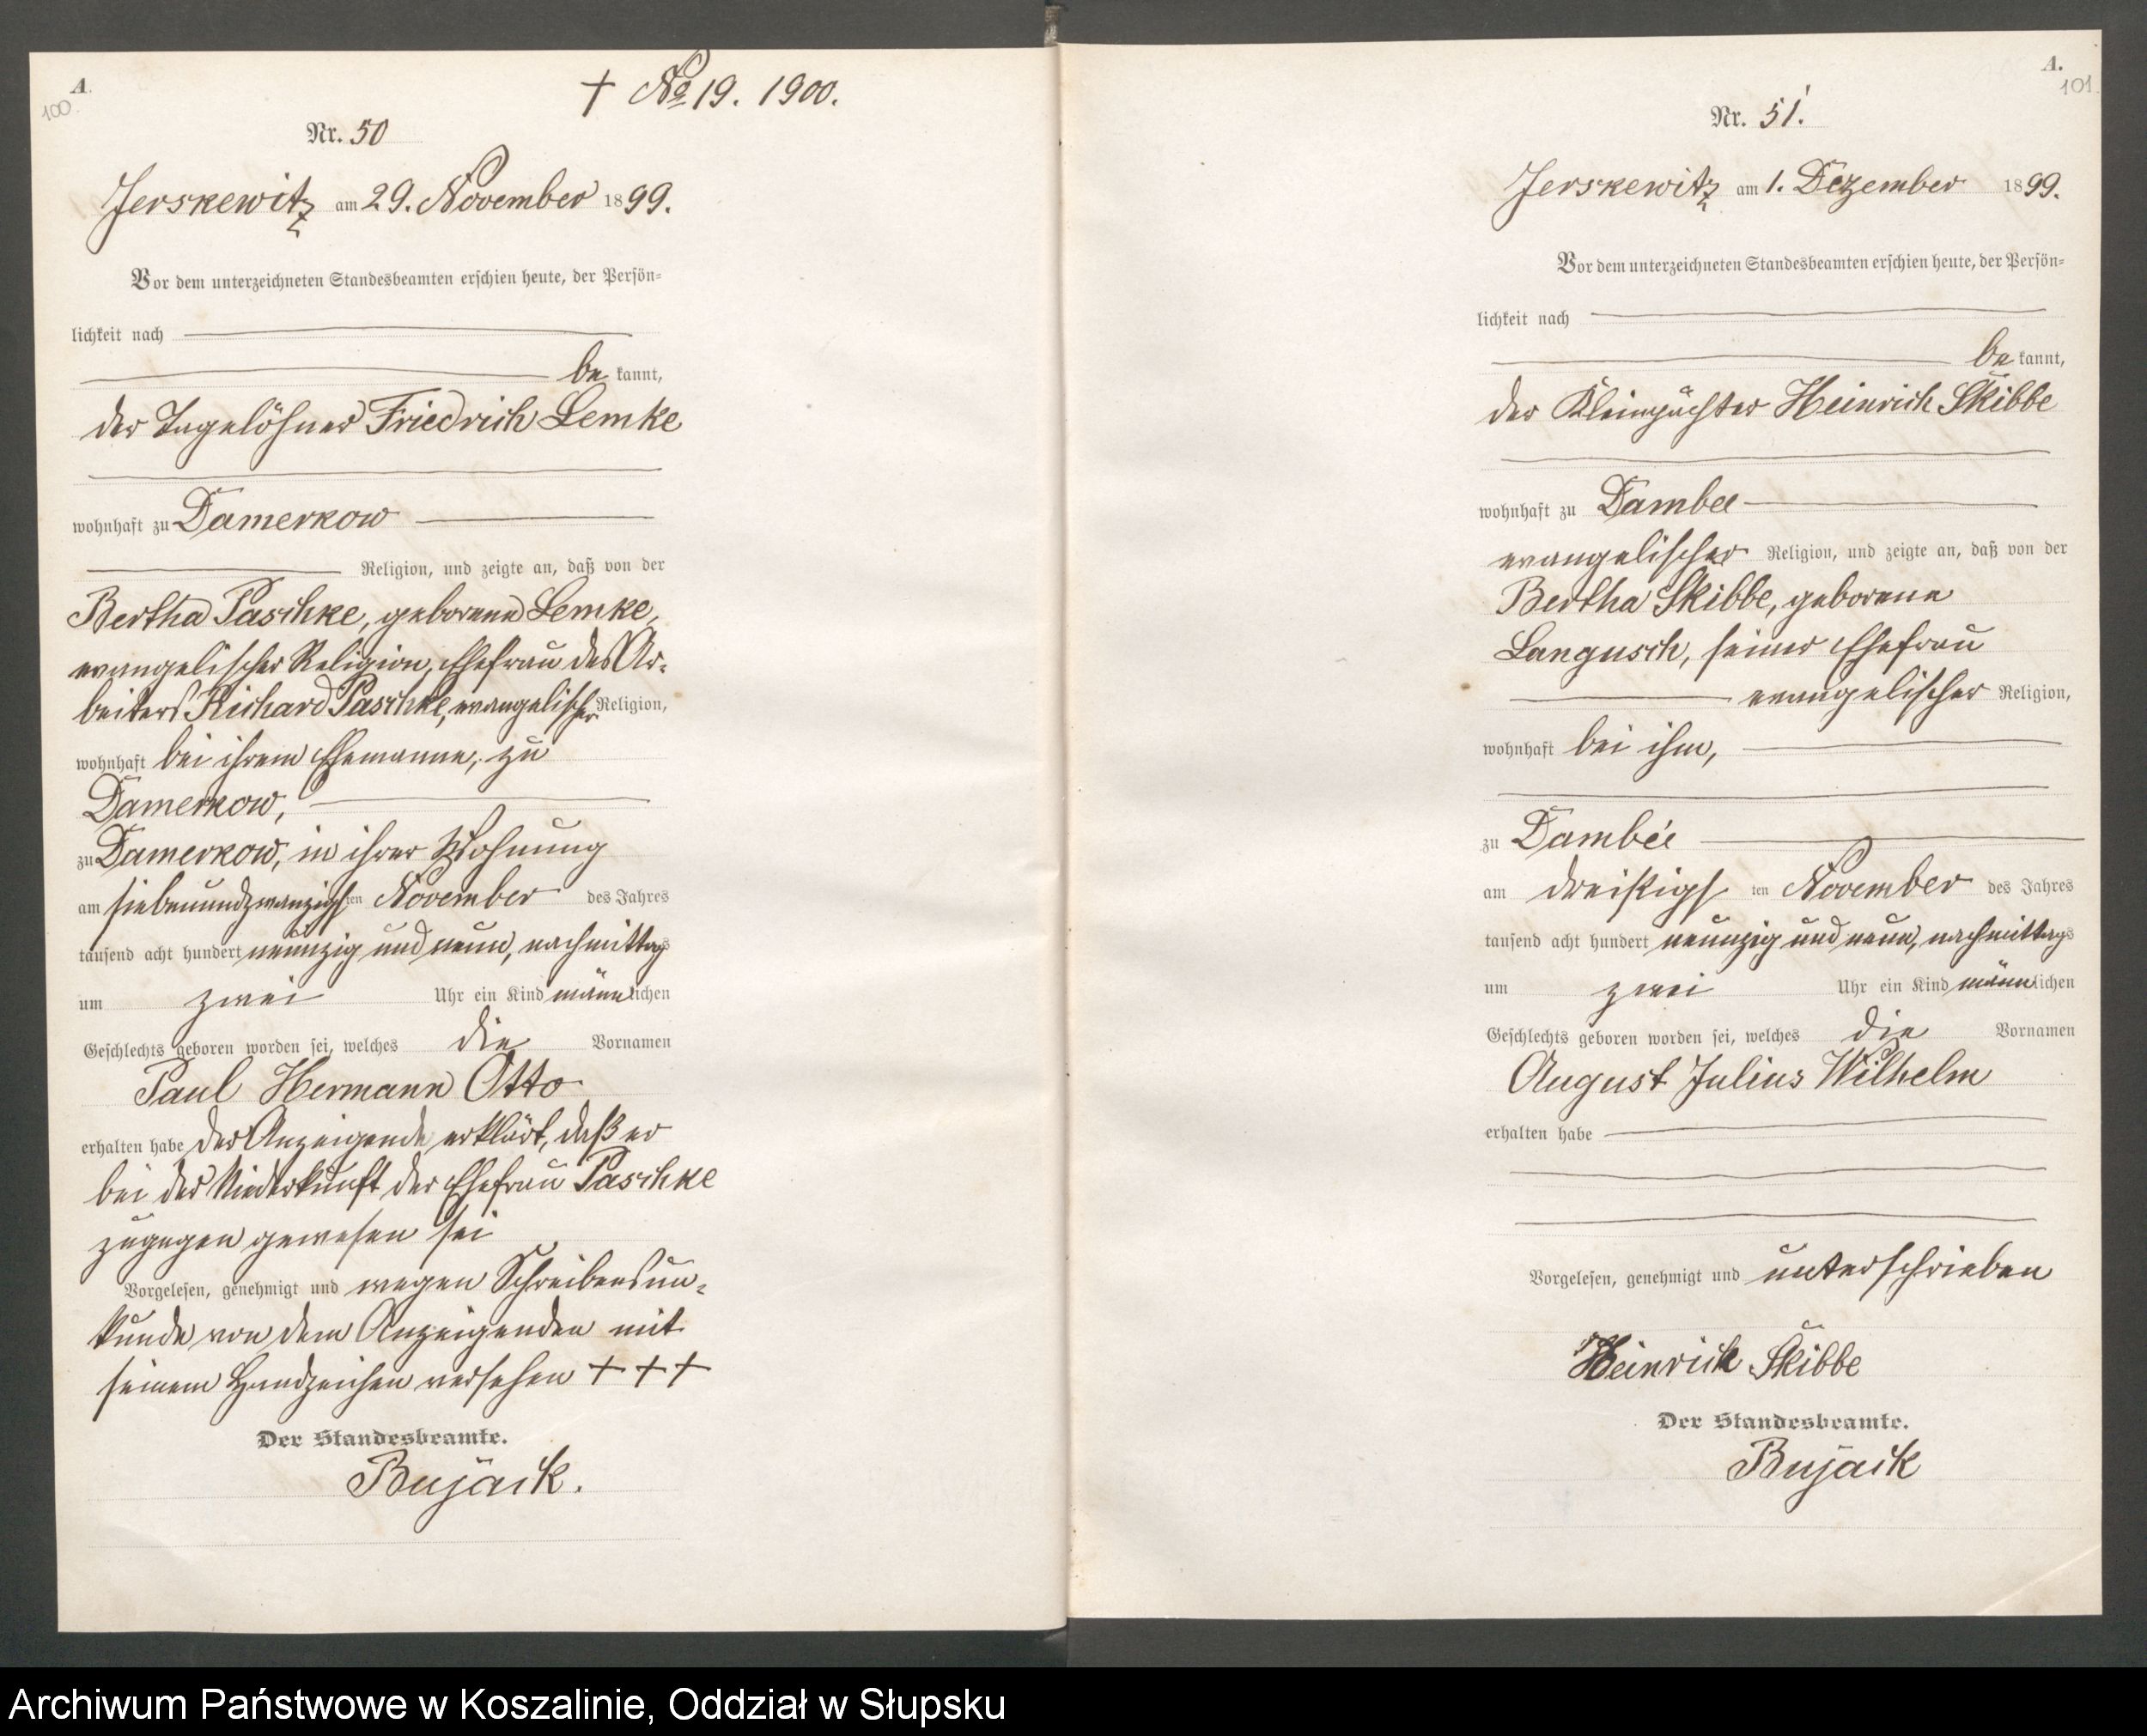 A.
100.
† No 19. 1900.
Nr. 50
Jerskewitz am 29. November 1899.
Vor dem unterzeichneten Standesbeamten erschien heute, der Persön-
lichkeit nach
be kannt,
der Tagelöhner Friedrich Lemke
wohnhaft zu Damerkow
Religion, und zeigte an, daß von der
Bertha Paschke, geborene Lemke,
evangelischer Religion, Ehefrau des Ar-
beiters Richard Paschke, evangelischer Religion,
wohnhaft bei ihrem Ehemanne, zu
Damerkow,
zu Damerkow, in ihrer Wohnung
am siebenundzwanzigsten November des Jahres
tausend acht hundert neunzig und neun, nachmittags
um zwei Uhr ein Kind männlichen
Geschlechts geboren worden sei, welches die Vornamen
Paul Hermann Otto
erhalten habe der Anzeigende erklärt, daß er
bei der Niederkunft der Ehefrau Paschke
zugegen gewesen sei
Vorgelesen, genehmigt und wegen Schreibensun-
kunde von dem Anzeigenden mit
seinem Handzeichen versehen + + +
Der Standesbeamte.
Bujack.
A.
101.
Nr. 51.
Jerskewitz am 1. Dezember 1899.
Vor dem unterzeichneten Standesbeamten erschien heute, der Persön-
lichkeit nach
be kannt,
der Kleinpächter Heinrich Skibbe
wohnhaft zu Dambee
evangelischer Religion, und zeigte an, daß von der
Bertha Skibbe, geborene
Langusch, seiner Ehefrau
evangelischer Religion,
wohnhaft bei ihm,
zu Dambee
am dreißigsten November des Jahres
tausend acht hundert neunzig und neun, nachmittags
um zwei Uhr ein Kind männlichen
Geschlechts geboren worden sei, welches die Vornamen
August Julius Wilhelm
erhalten habe
Vorgelesen, genehmigt und unterschrieben
Heinrich Skibbe
Der Standesbeamte.
Bujack
Archiwum Państwowe w Koszalinie, Oddział w Słupsku